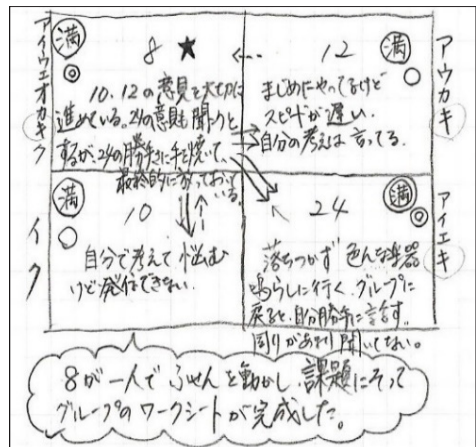 満
8 ★
10、12の意見を大切に
進めている。24の意見も聞こうと
するが、24の勝手さに手を焼いて、
最終的に放っておいている。
12
満
まじめにやってるけど
スピードが遅い。
自分の考えは言ってる。
満
10
自分で考えて悩む
けど発信できない。
24
満
落ちつかず 色んな楽器
鳴らしに行く。グループに
戻ると、自分勝手に話す。
周りがあまり聞いてない。
アイウエオカキク
アウカキ
イク
アイエキ
8が一人でふせんを動かし、課題にそって
グループのワークシートが完成した。